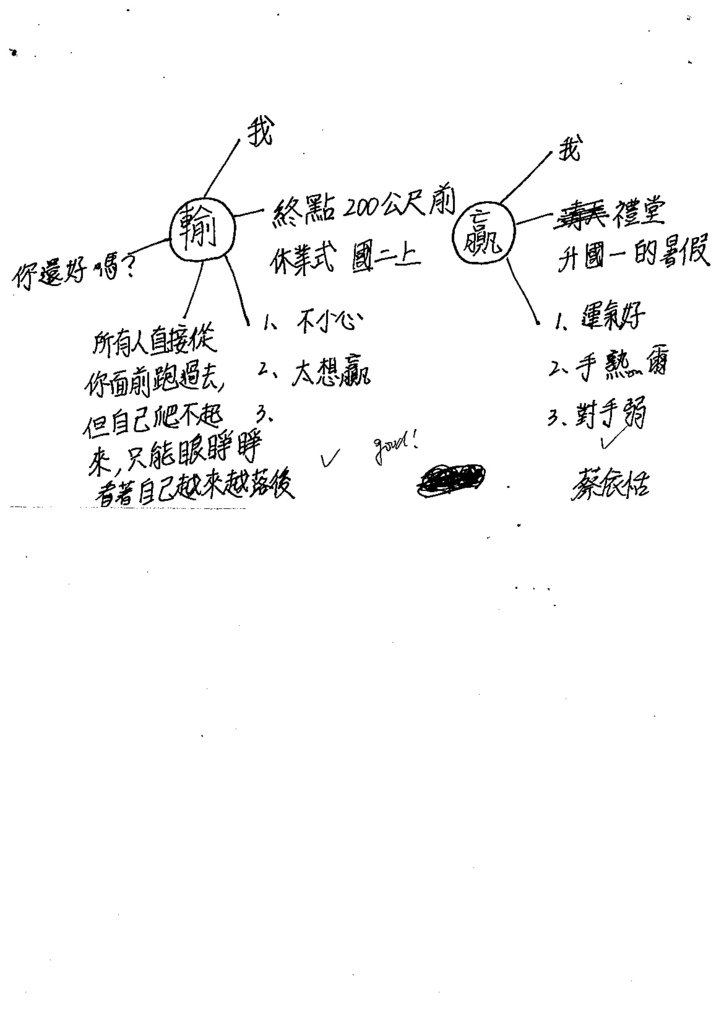 我
輸
終點200公尺前
休業式 國二上
你還好嗎?
所有人直接從
你面前跑過去,
但自己爬不起
來,只能眼睜睜
看著自己越來越落後
1、不小心
2、太想贏
3、
good!
我
贏
禮堂
升國一的暑假
1、運氣好
2、手熱
3、對手弱